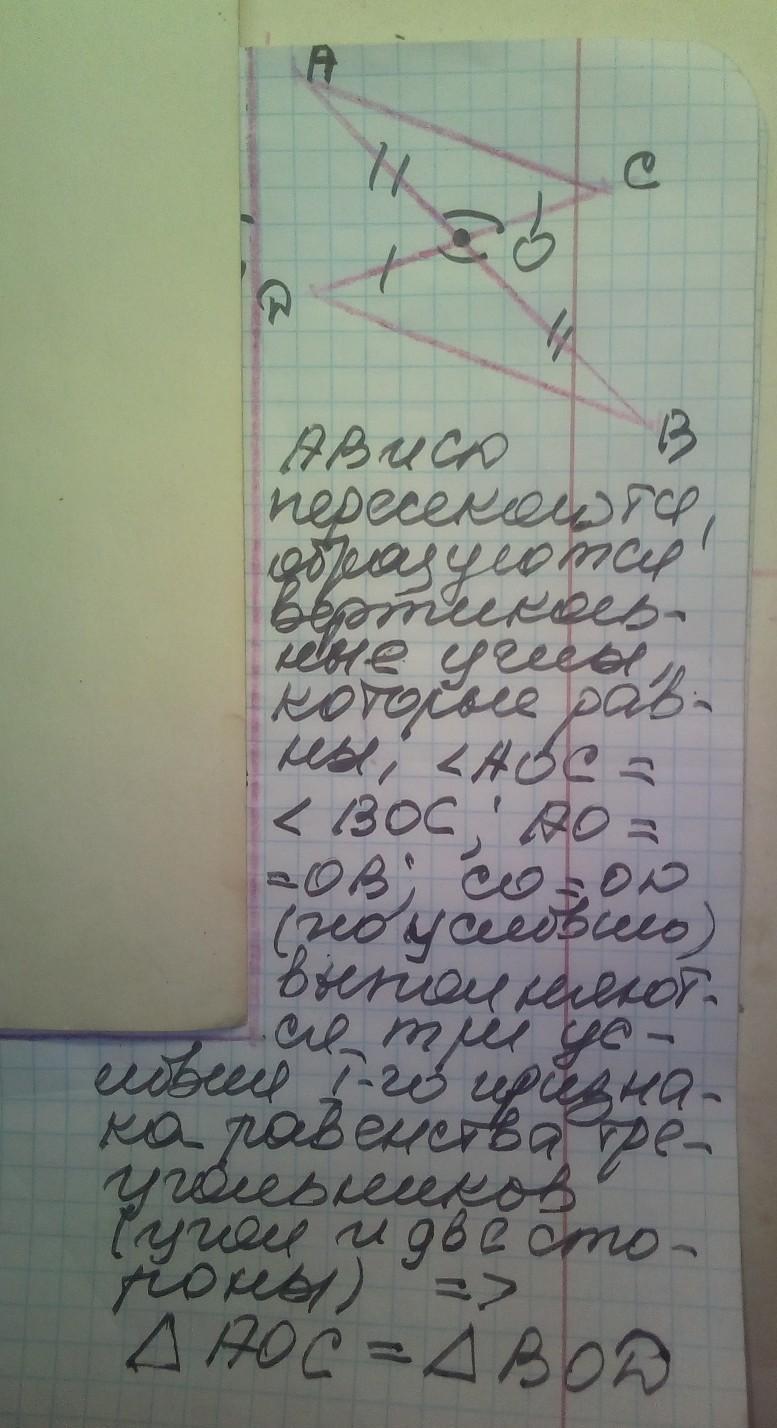 A
C
O
D
B
AB и CD
пересекаются,
образуются
вертикаль-
ные углы,
которые рав-
ны, <AOC =
< BOC; AO =
=OB; CO=OD
(по условию)
выполняют-
ся три ус-
ловия I-го призна-
ка равенства тре-
угольников
(угол и две сто-
роны) =>
△ AOC = △ BOD